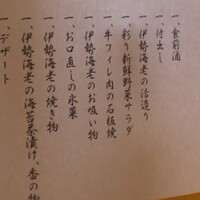 一、食前酒
一、付出し
一、伊勢海老の活造り
一、彩り新鮮野菜サラダ
一、牛フィレ肉の石板焼
一、伊勢海老のお吸い物
一、お口直しの氷菓
一、伊勢海老の焼き物
一、伊勢海老の海苔茶漬け、香の物
一、デザート